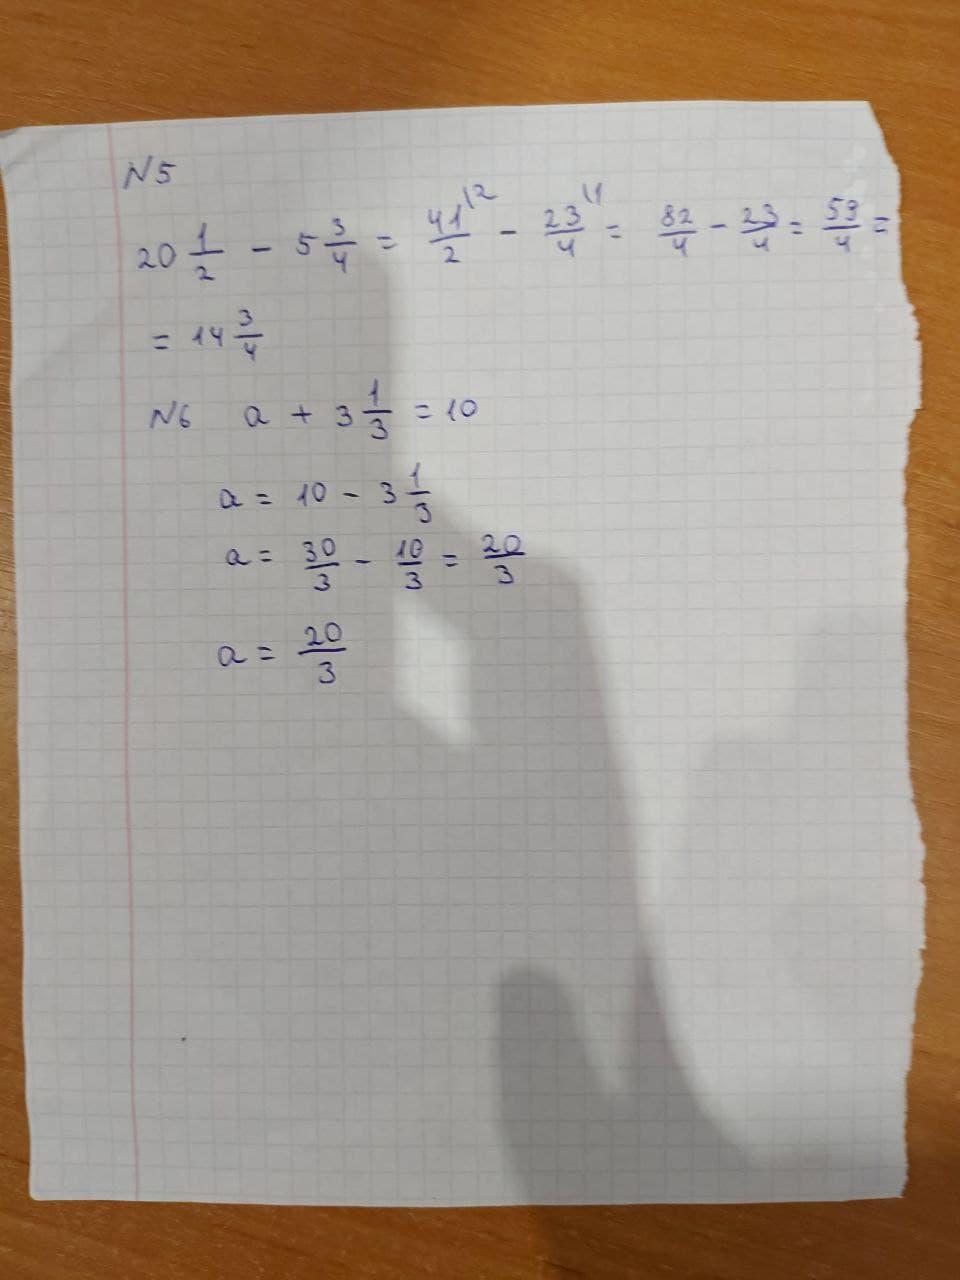 N5
20 1/2 - 5 3/4 = 41/2 \2 - 23/4 \1 = 82/4 - 23/4 = 59/4 =
= 14 3/4
N6 a + 3 1/3 = 10
a = 10 - 3 1/3
a = 30/3 - 10/3 = 20/3
a = 20/3